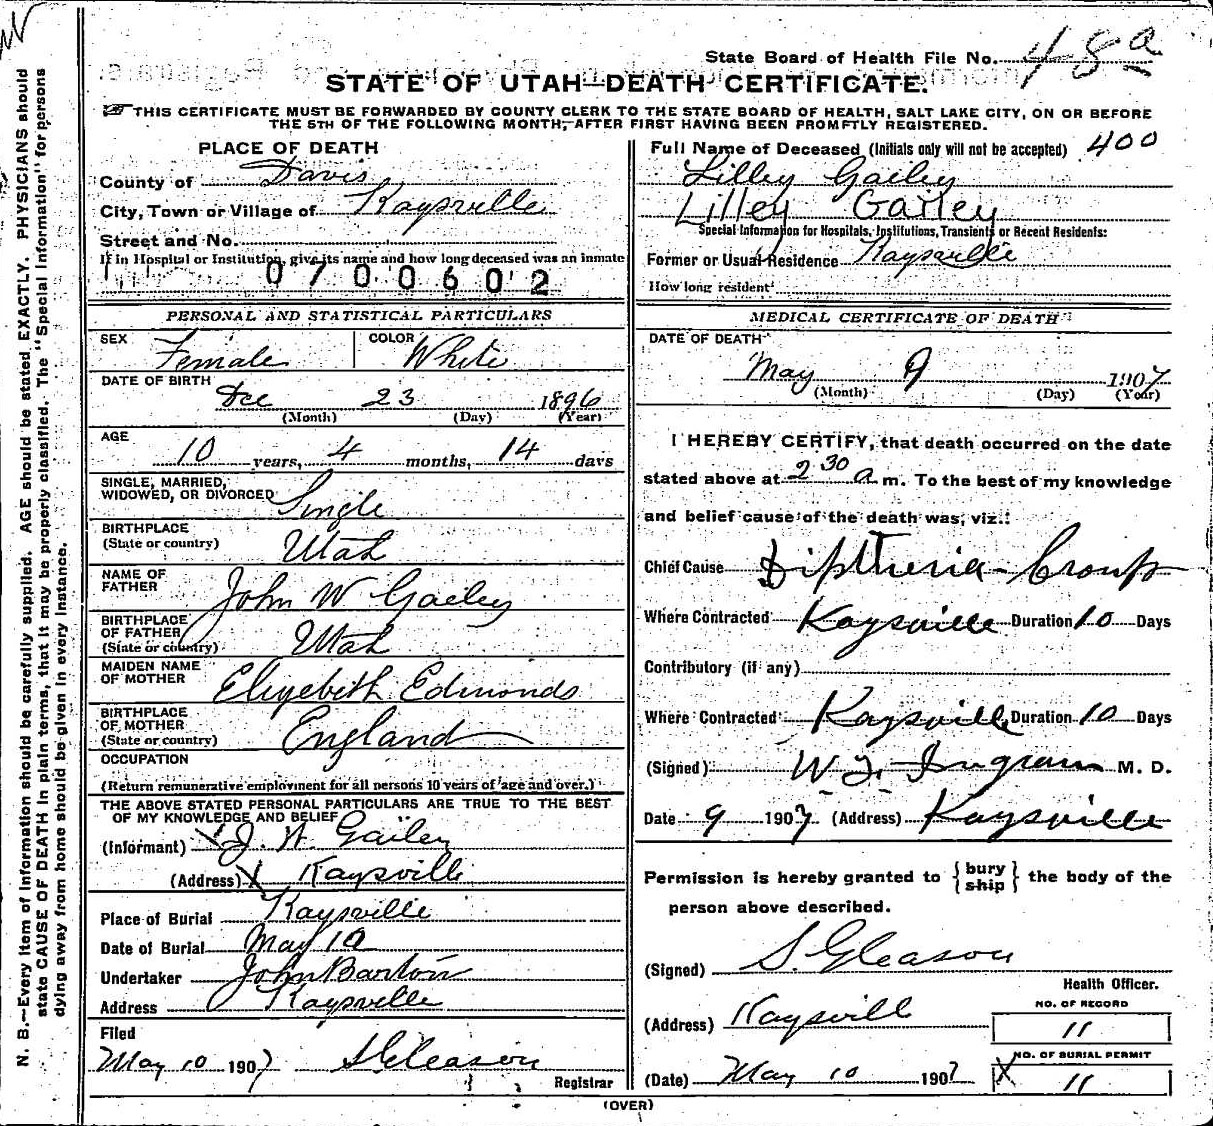 State Board of Health File No. 48a
STATE OF UTAH—DEATH CERTIFICATE.
THIS CERTIFICATE MUST BE FORWARDED BY COUNTY CLERK TO THE STATE BOARD OF HEALTH, SALT LAKE CITY, ON OR BEFORE
THE 5TH OF THE FOLLOWING MONTH, AFTER FIRST HAVING BEEN PROMPTLY REGISTERED.
PLACE OF DEATH
County of Davis
City, Town or Village of Kaysville
Street and No.
If in Hospital or Institution, give its name and how long deceased was an inmate
0700602
PERSONAL AND STATISTICAL PARTICULARS
SEX Female COLOR White
DATE OF BIRTH Dec 23 1896
(Month) (Day) (Year)
AGE 10 years, 4 months, 14 days
SINGLE, MARRIED,
WIDOWED, OR DIVORCED Single
BIRTHPLACE
(State or country) Utah
NAME OF
FATHER John W Gailey
BIRTHPLACE
OF FATHER
(State or country) Utah
MAIDEN NAME
OF MOTHER Elizebith Edmonds
BIRTHPLACE
OF MOTHER
(State or country) England
OCCUPATION
(Return remunerative employment for all persons 10 years of age and over.)
THE ABOVE STATED PERSONAL PARTICULARS ARE TRUE TO THE BEST
OF MY KNOWLEDGE AND BELIEF
(Informant) X J. W. Gailey
(Address) X Kaysville
Place of Burial Kaysville
Date of Burial May 10
Undertaker John Barton
Address Kaysville
Filed
May 10 1907 S Gleason
Registrar
400
Full Name of Deceased (Initials only will not be accepted)
Lilley Gailey
Lilley Gailey
Special Information for Hospitals, Institutions, Transients or Recent Residents:
Former or Usual Residence Kaysville
How long resident
MEDICAL CERTIFICATE OF DEATH
DATE OF DEATH
May 9 1907
(Month) (Day) (Year)
I HEREBY CERTIFY, that death occurred on the date
stated above at 2 30 a m. To the best of my knowledge
and belief cause of the death was, viz.:
Chief Cause Diptheria - Croup
Where Contracted Kaysville Duration 10 Days
Contributory (if any)
Where Contracted Kaysville Duration 10 Days
(Signed) W. T. Ingram M. D.
Date 9 1907 (Address) Kaysville
Permission is hereby granted to {bury ship} the body of the
person above described.
(Signed) S. Gleason
Health Officer.
(Address) Kaysvill
NO. OF RECORD
11
(Date) May 10 1907
NO. OF BURIAL PERMIT
X 11
(OVER)
N. B.—Every item of information should be carefully supplied. AGE should be stated EXACTLY. PHYSICIANS should
state CAUSE OF DEATH in plain terms, that it may be properly classified. The "Special Information" for persons
dying away from home should be given in every instance.